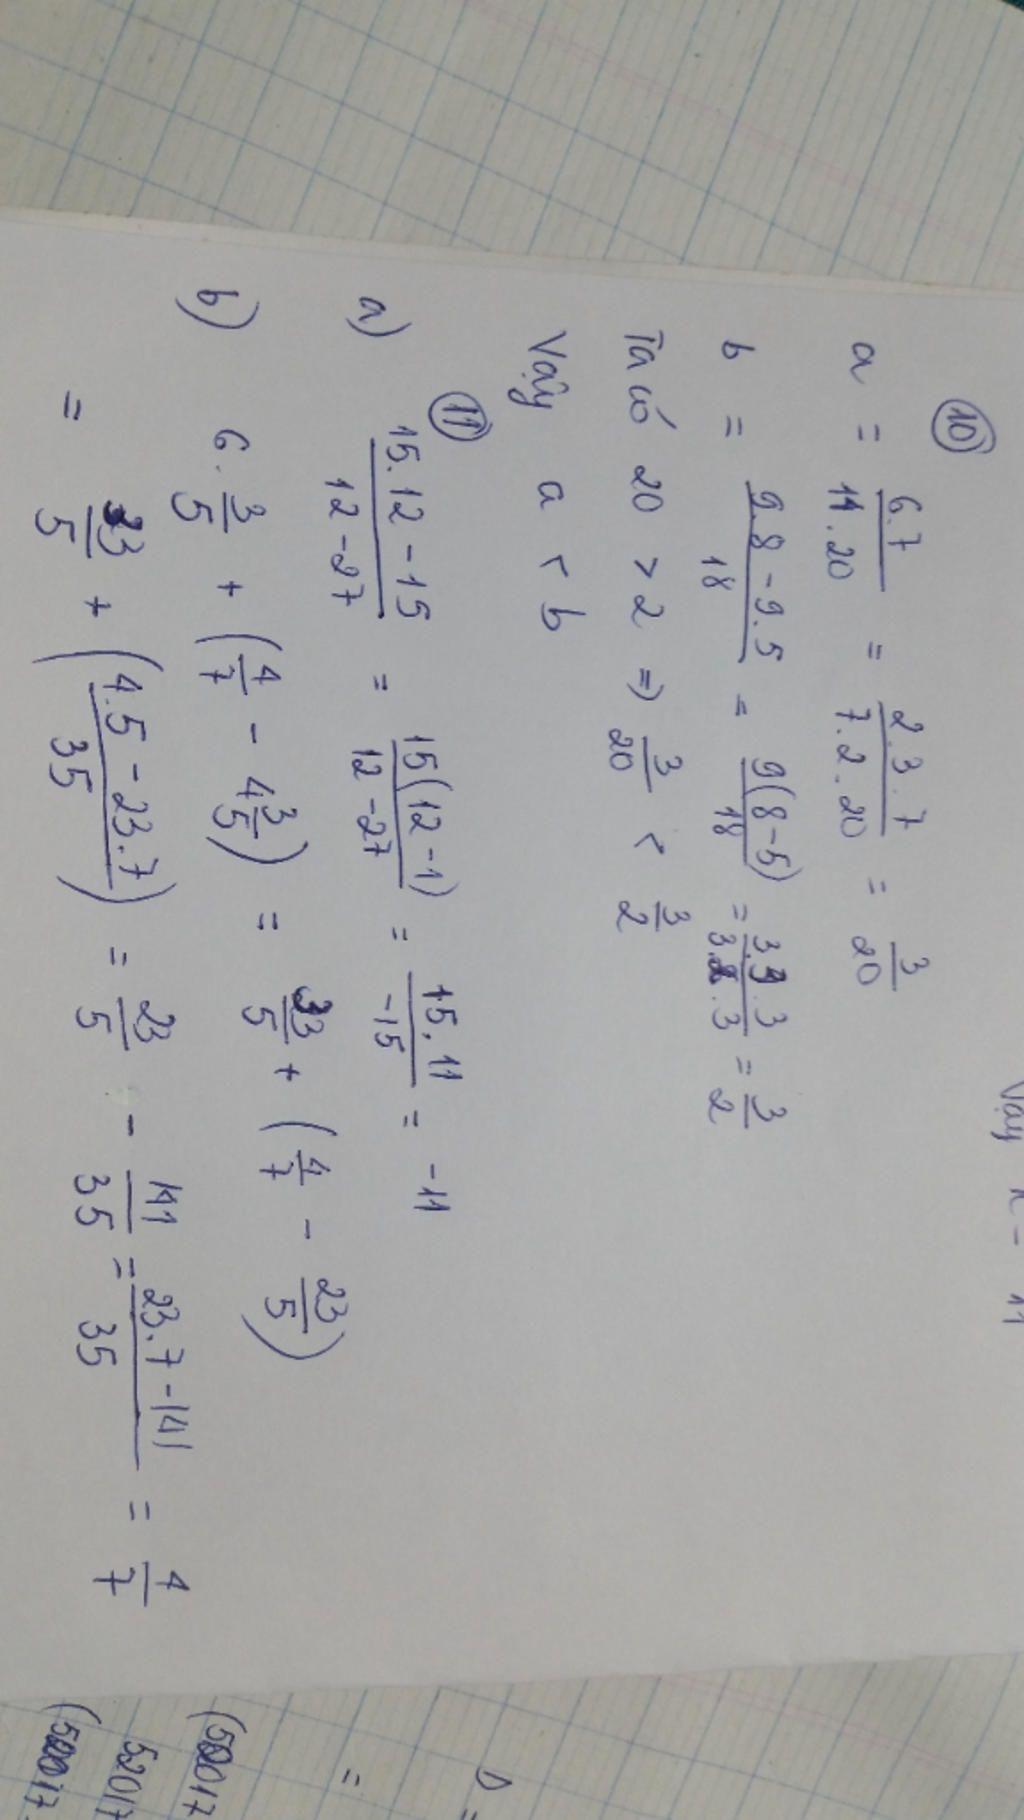 Vậy
⑩
a = 6.7/14.20 = 2.3.7/7.2.20 = 3/20
b = (9.8 - 9.5)/18 = 9(8-5)/18 = 3.3.3/3.2.3 = 3/2
Ta có 20 > 2 => 3/20 < 3/2
Vậy a < b
⑪
a) (15.12 - 15)/(12 - 27) = 15(12 - 1)/(12 - 27) = 15.11/-15 = -11
b) 6.3/5 + (4/7 - 4 3/5) = 33/5 + (4/7 - 23/5)
= 33/5 + ((4.5 - 23.7)/35) = 23/5 - 141/35 = (23.7 - 141)/35 = 4/7
D =
=